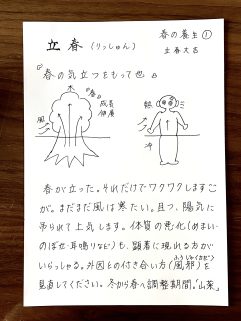 春の養生①
立春大吉
立春（りっしゅん）
『春の気立つをもって也』
木
"春"
成長
伸展
熱
冷
春が立った。それだけでワクワクします
が。まだまだ風は寒たい。且つ、陽気に
吊られて上気します。体質の悪化（めまい・
のぼせ・耳鳴りなど）も、顕著に現れる方がい
らっしゃる。外因との付き合い方（風邪）を
ふうじゃ
見直してください。冬から春へ調整期間。"山菜"